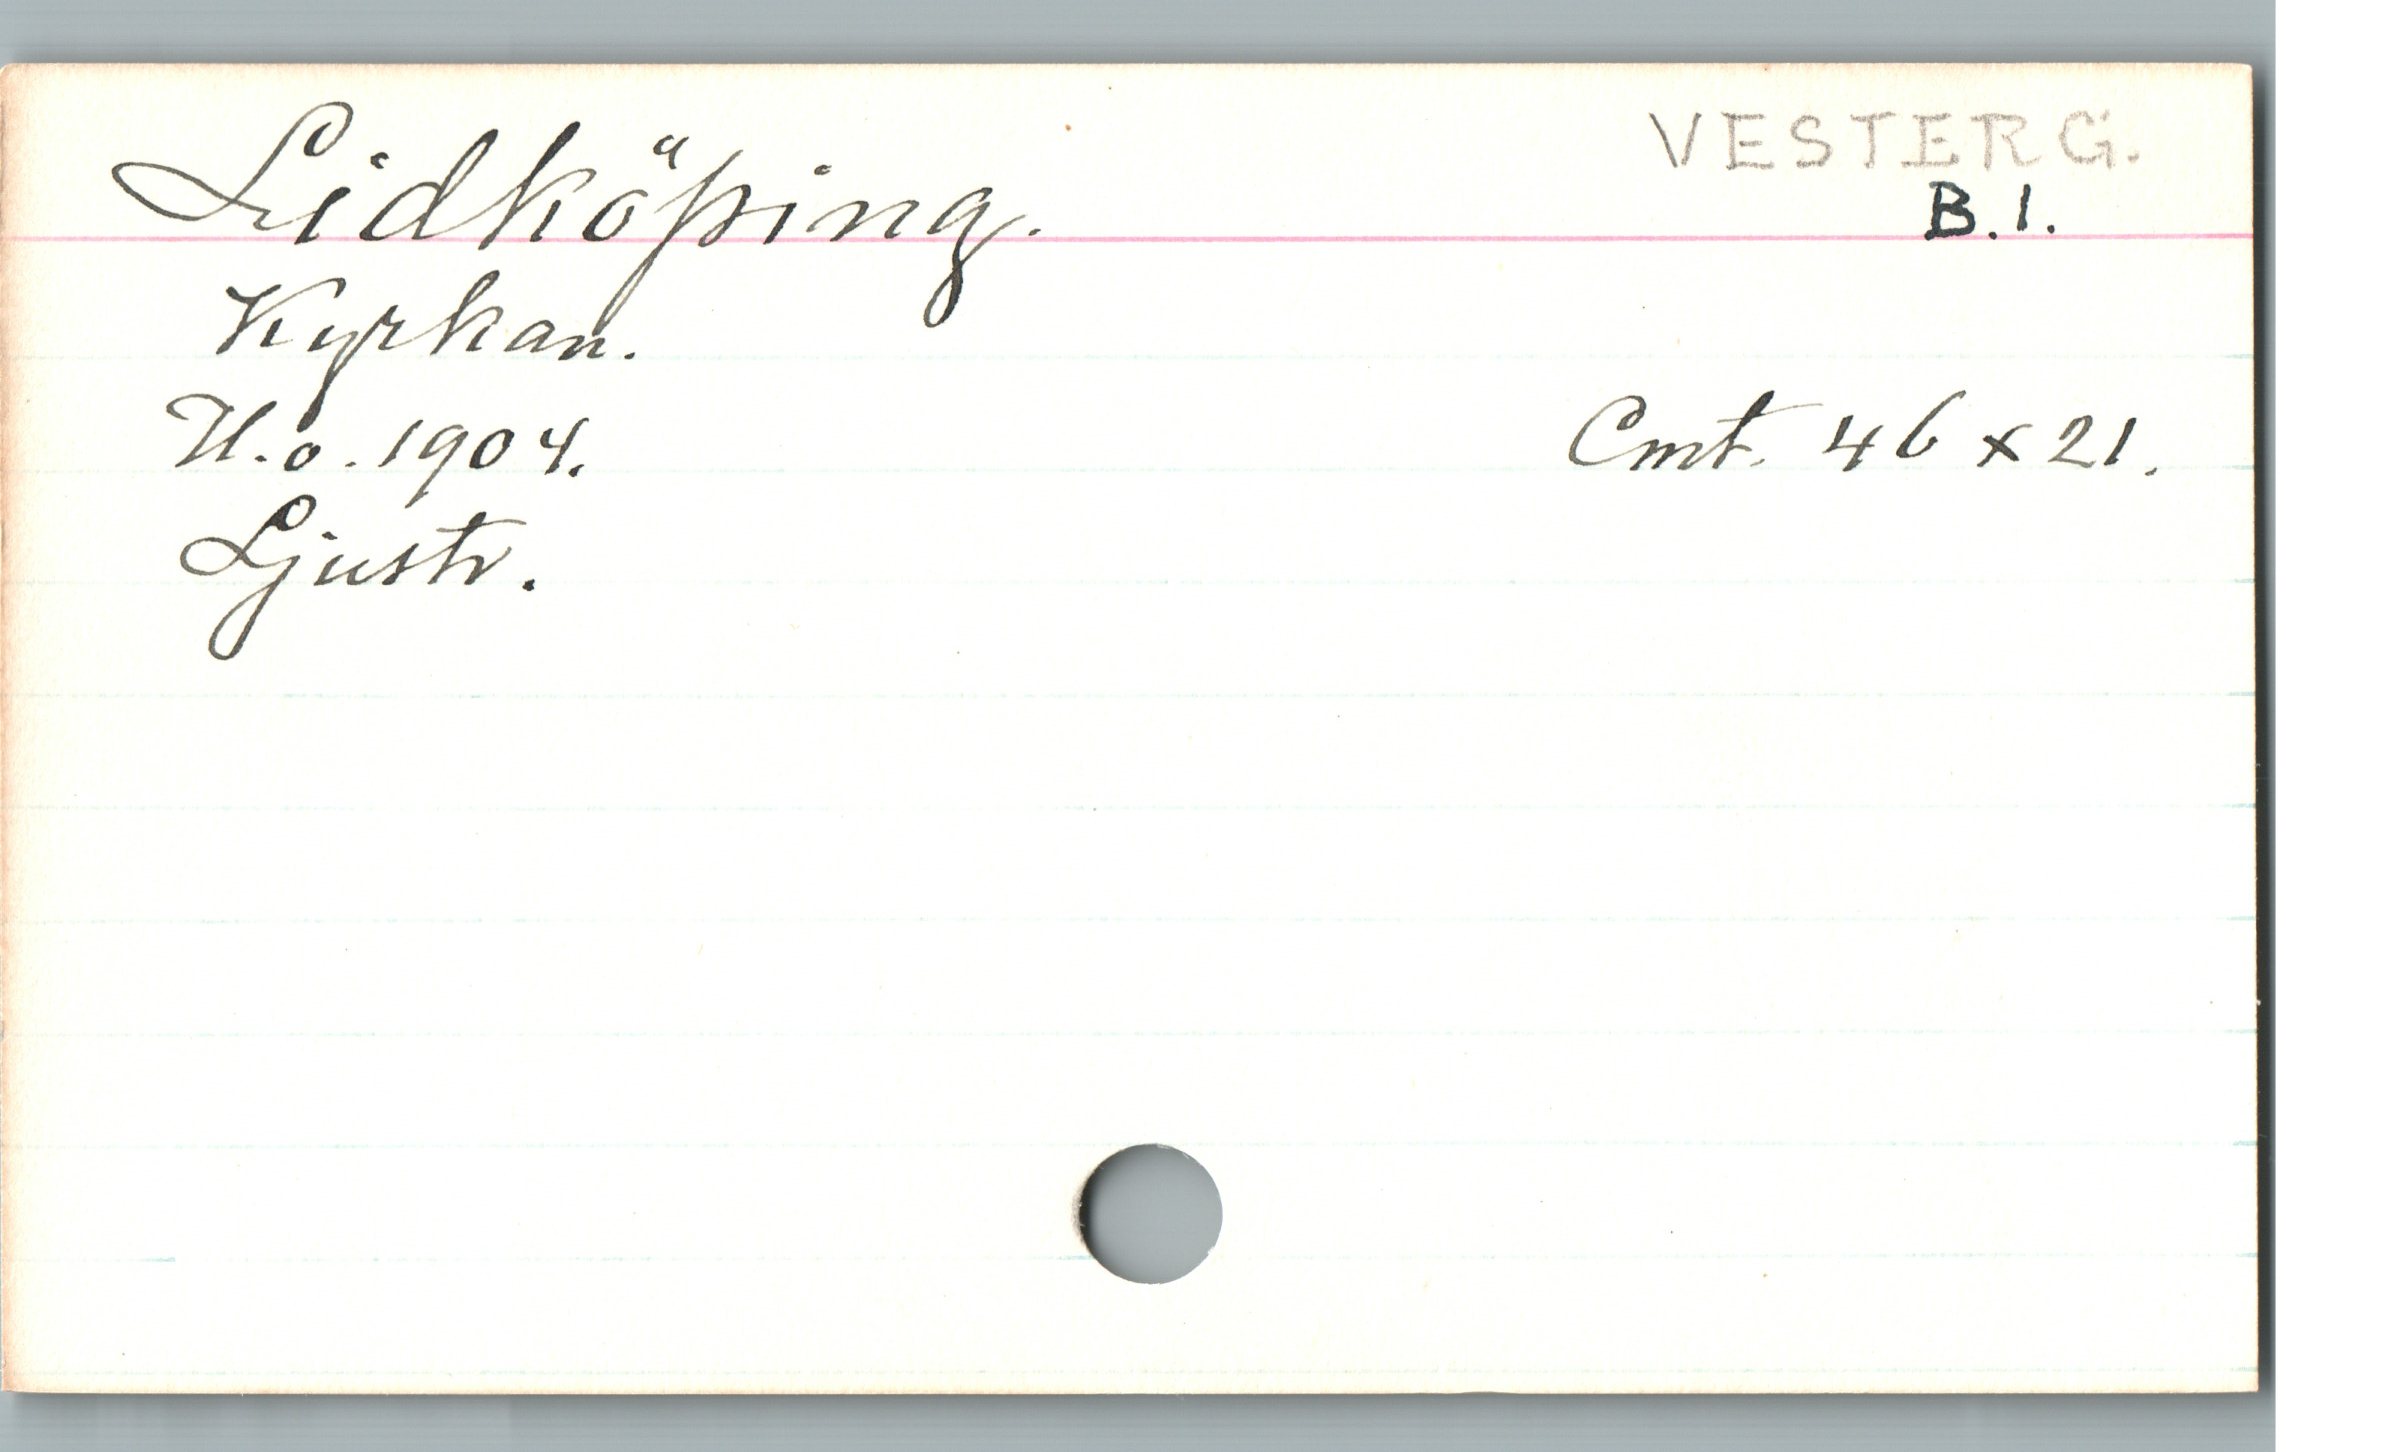 Lidköping.
VESTERG.
B.1.
Kyrkan.
U.o. 1904.
Cmt. 46 x 21.
Ljustr.